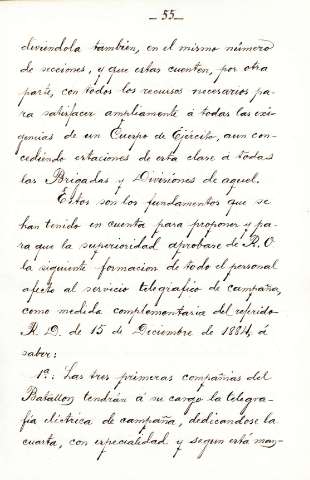 — 55 —
diviéndola también, en el mismo número
de secciones, y que estas cuenten, por otra
parte, con todos los recursos necesarios pa-
ra satisfacer ampliamente á todas las exi-
gencias de un Cuerpo de Ejército, aun con-
cediendo estaciones de esta clase á todas
las Brigadas y Divisiones de aquel.
Estos son los fundamentos que se
han tenido en cuenta para proponer y pa-
ra que la superioridad aprobase de R. O.
la siguiente formacion de todo el personal
afecto al servicio telegrafico de campaña,
como medida complementaria del referido
R. D. de 15 de Diciembre de 1884, á
saber:
1ª: Las tres primeras compañias del
Batallon tendrán á su cargo la telegra-
fía eléctrica de campaña, dedicandose la
cuarta, con especialidad y segun está man-